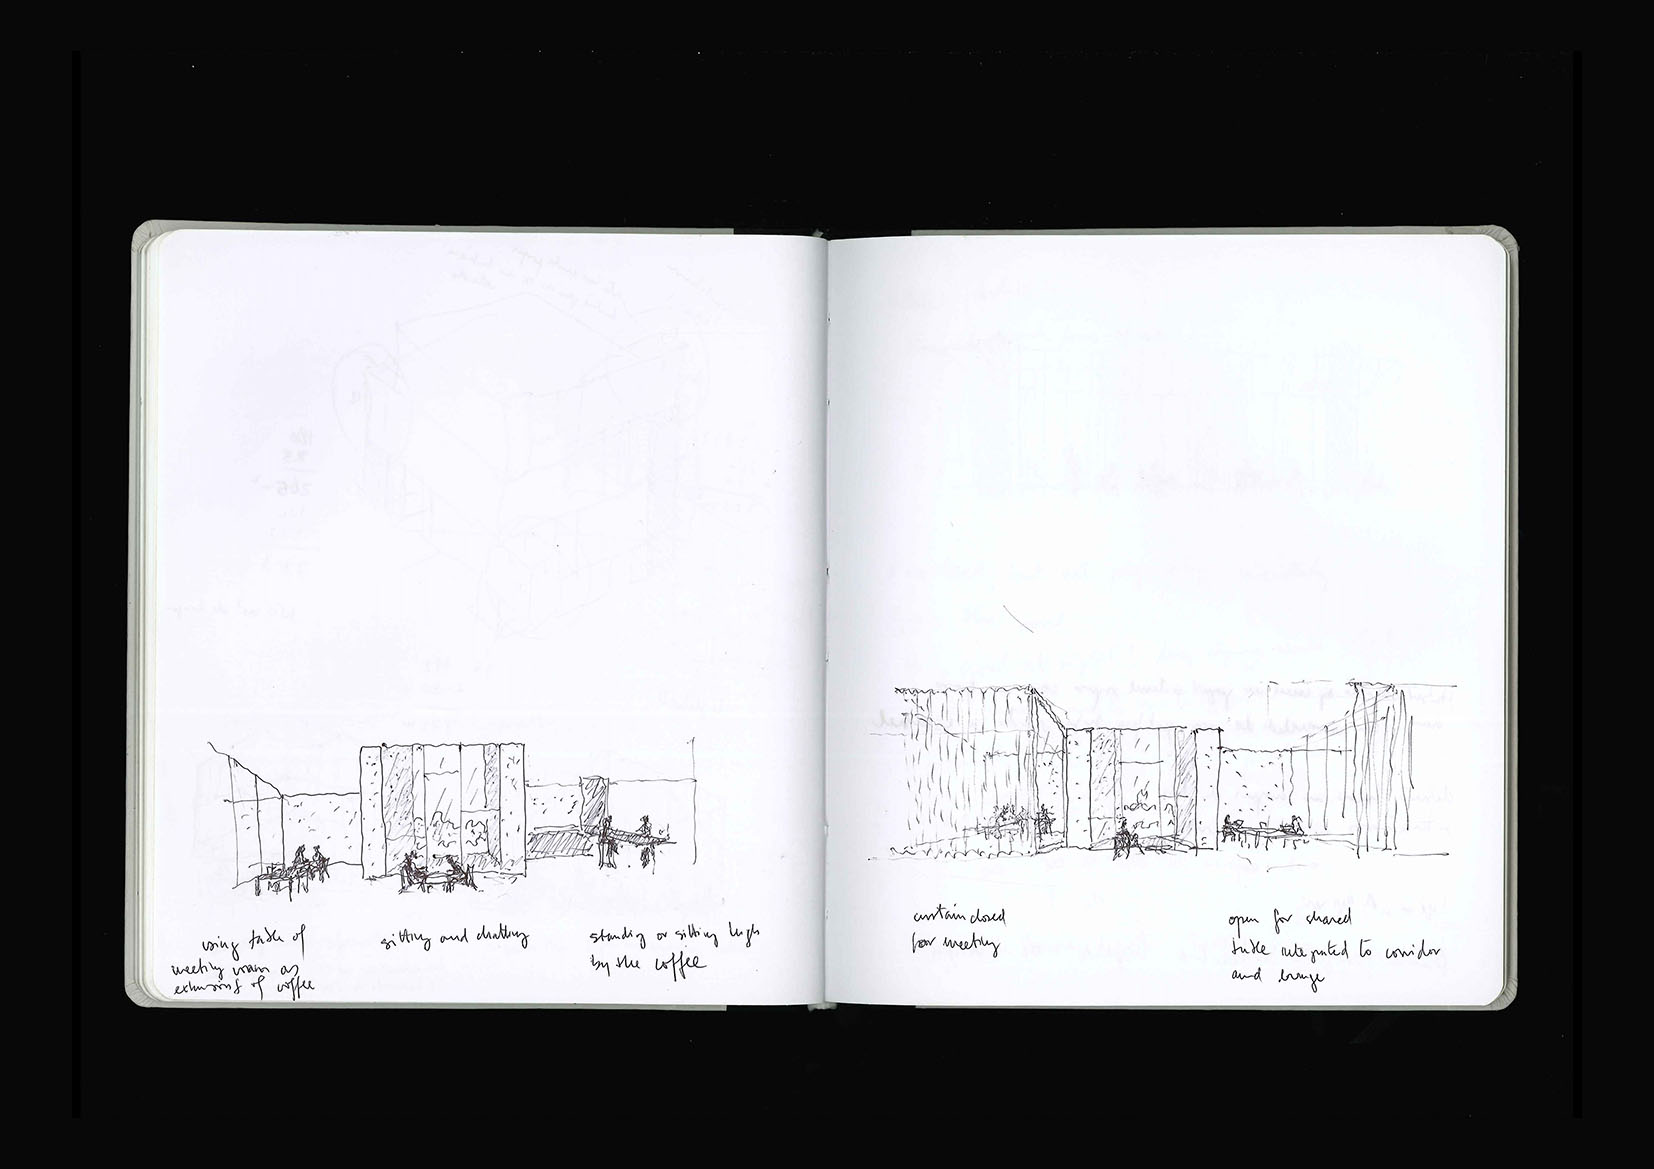 using table of
meeting room as
extensions of coffee
sitting and chatting
standing or sitting high
by the coffee
curtain closed
for meeting
open for shared
table integrated to corridor
and lounge